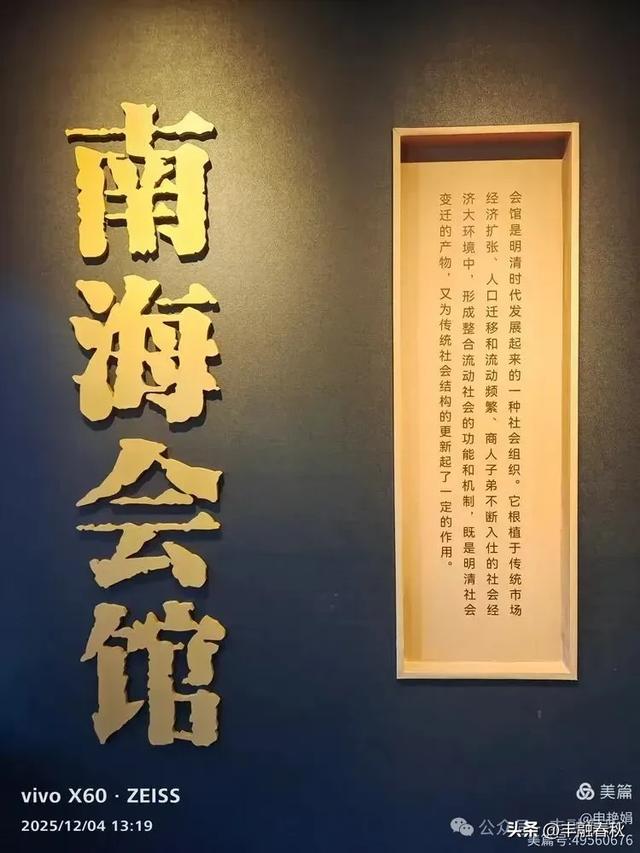 南海会馆
会馆是明清时代发展起来的一种社会组织。它根植于传统市场
经济扩张、人口迁移和流动频繁、商人子弟不断入仕的社会经
济大环境中，形成整合流动社会的功能和机制，既是明清社会
变迁的产物，又为传统社会结构的更新起了一定的作用。
vivo X60 · ZEISS
2025/12/04 13:19
美篇
@申艳娟
公众号
头条 @丰融春秋
美篇号:49560676